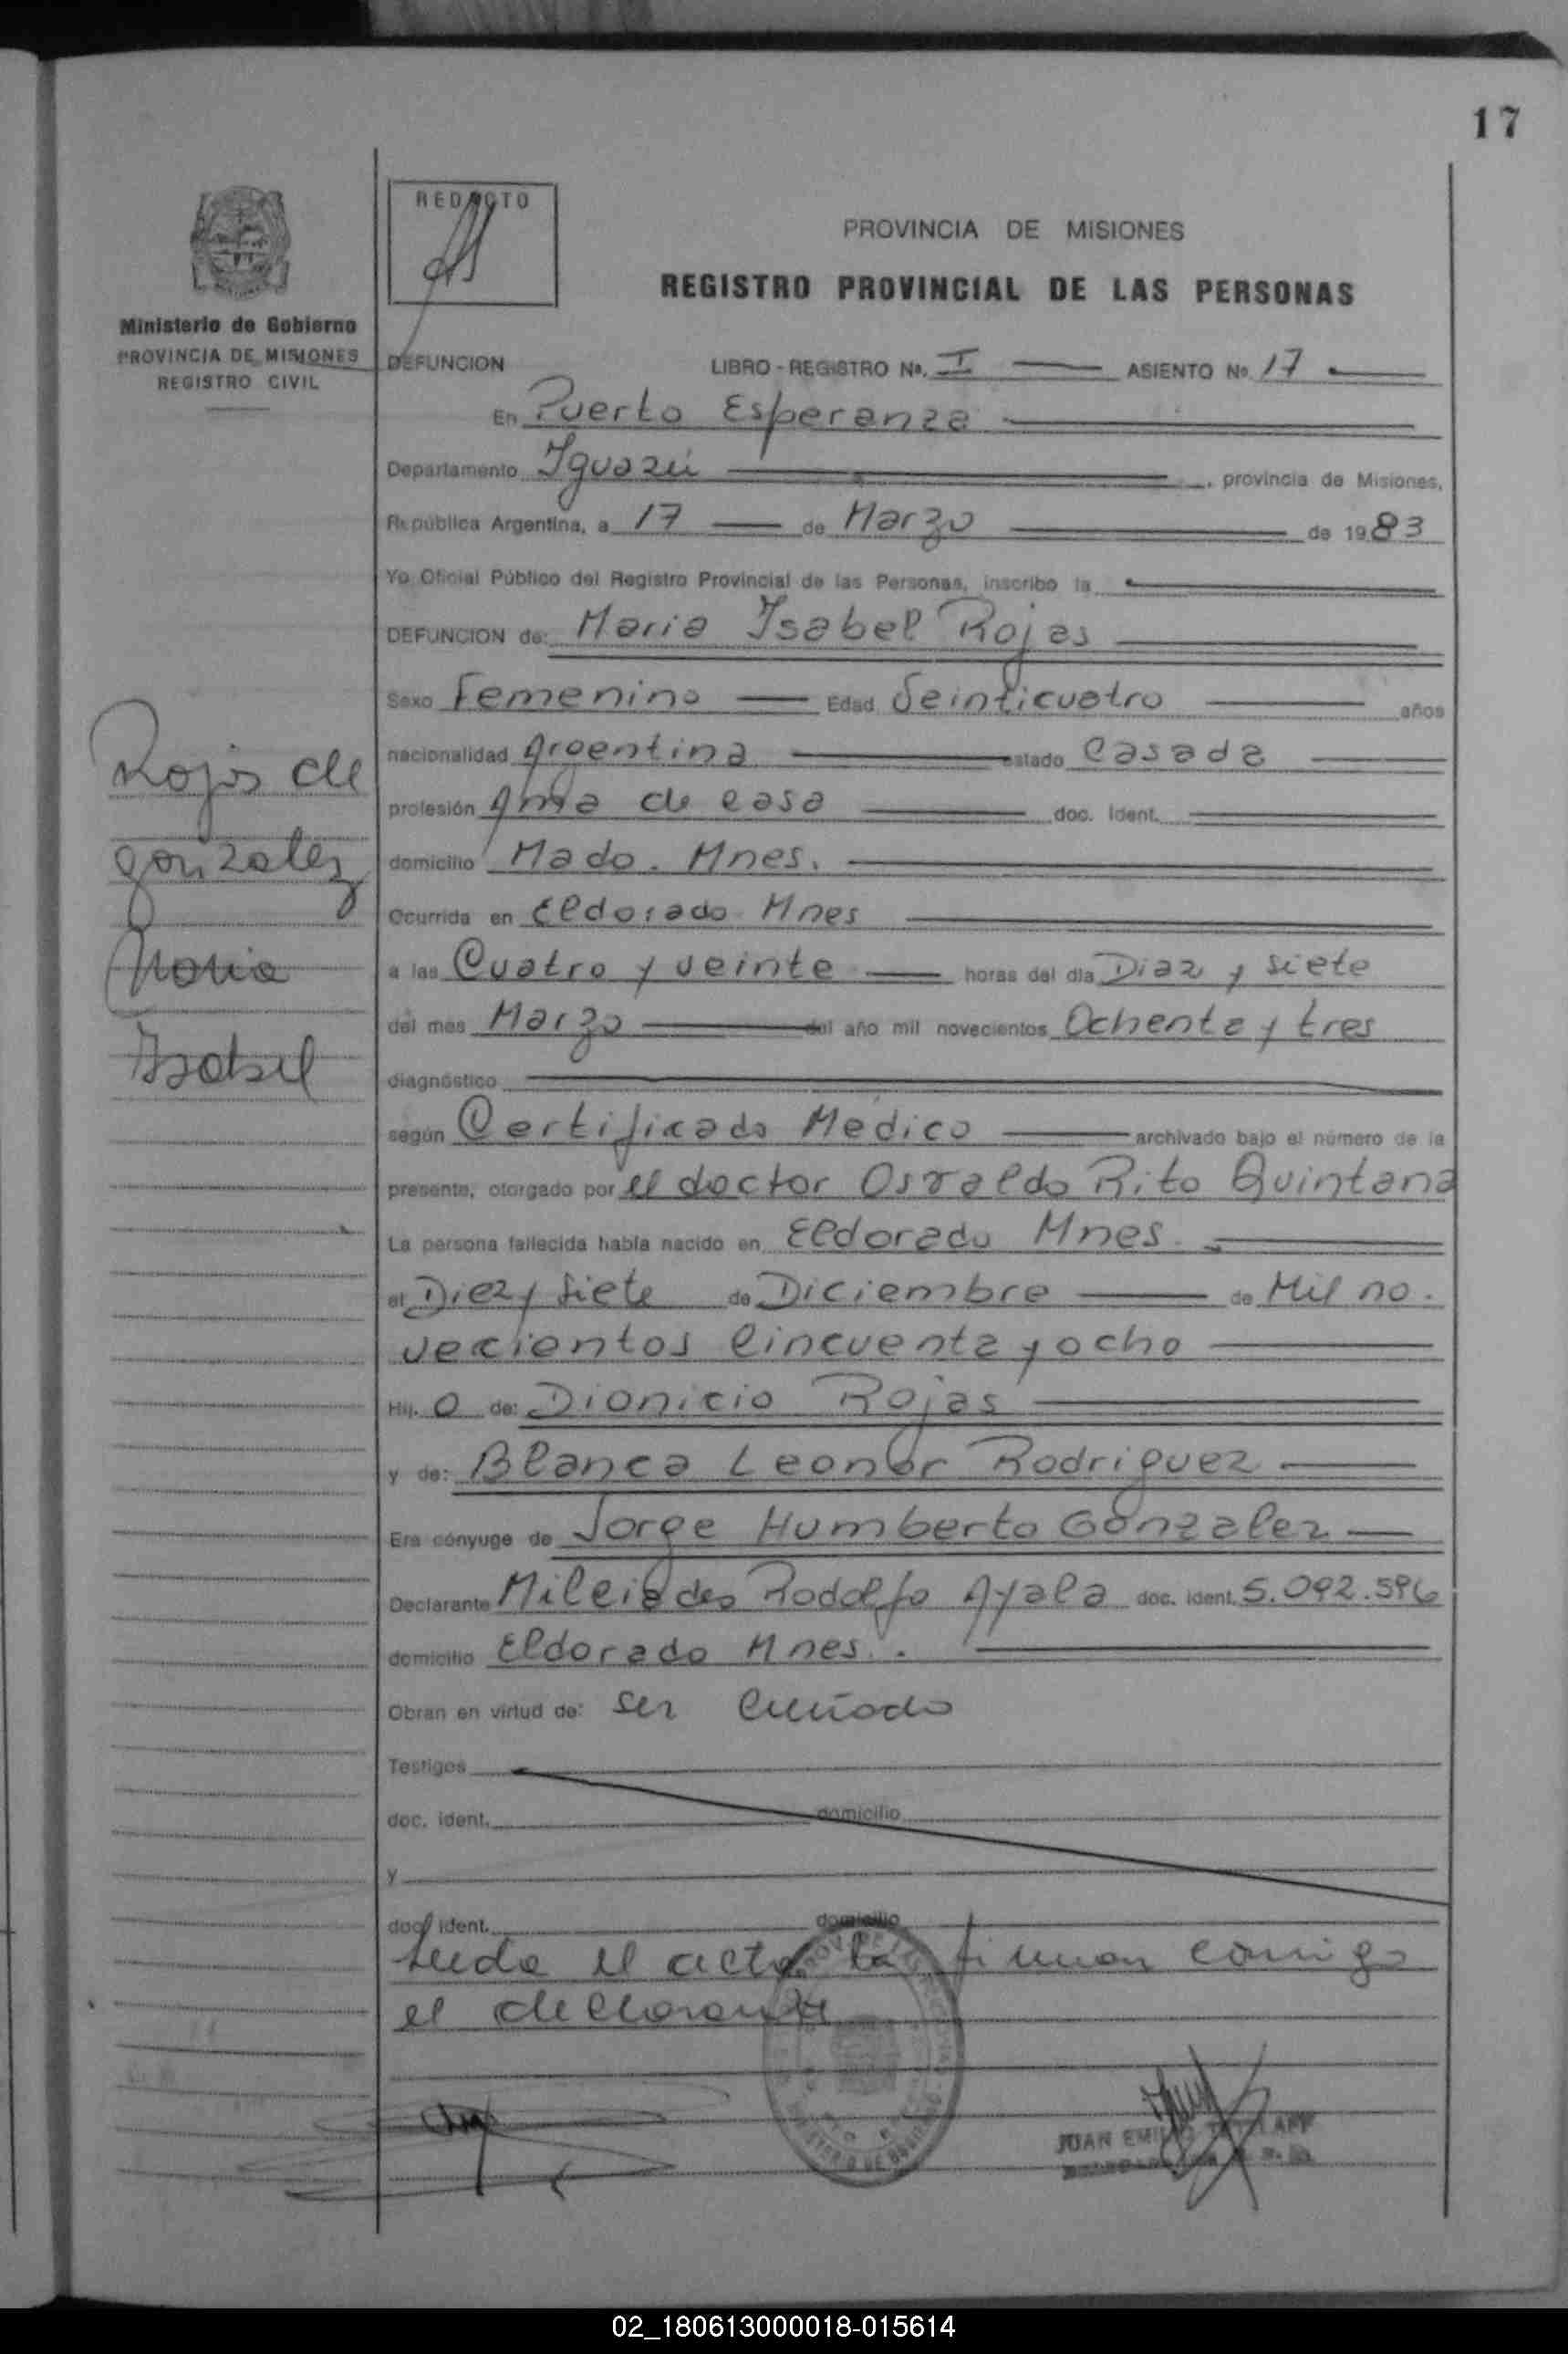 17
REDACTO
PROVINCIA DE MISIONES
REGISTRO PROVINCIAL DE LAS PERSONAS
Ministerio de Gobierno
PROVINCIA DE MISIONES
REGISTRO CIVIL
DEFUNCION LIBRO - REGISTRO No. I ASIENTO No 17
En Puerto Esperanza
Departamento Iguazú , provincia de Misiones,
República Argentina, a 17 de Marzo de 1983
Yo Oficial Público del Registro Provincial de las Personas, inscribo la
DEFUNCION de: Maria Isabel Rojas
Sexo Femenino Edad Veinticuatro años
nacionalidad Argentina estado Casada
profesión Ama de casa doc. ident.
domicilio Mado. Mnes.
Ocurrida en Eldorado Mnes
a las Cuatro y veinte horas del día Diaz y siete
del mes Marzo del año mil novecientos Ochenta y tres
diagnóstico
según Certificado Medico archivado bajo el número de la
presente, otorgado por el doctor Osvaldo Rito Quintana
La persona fallecida había nacido en Eldorado Mnes.
el Diez y siete de Diciembre de Mil no.
vecientos Cincuenta y ocho
Hij. o de: Dionicio Rojas
y de: Blanca Leonor Rodriguez
Era cónyuge de Jorge Humberto Gonzalez
Declarante Milciades Rodolfo Ayala doc. ident. 5.092.596
domicilio Eldorado Mnes.
Obran en virtud de: ser cuñado
Testigos
doc. ident. domicilio
y
doc. ident. domicilio
Leida el acta la firman conmigo
el declarante
Rojas de
gonzalez
Maria
Isabel
JUAN EMILIO
02_180613000018-015614